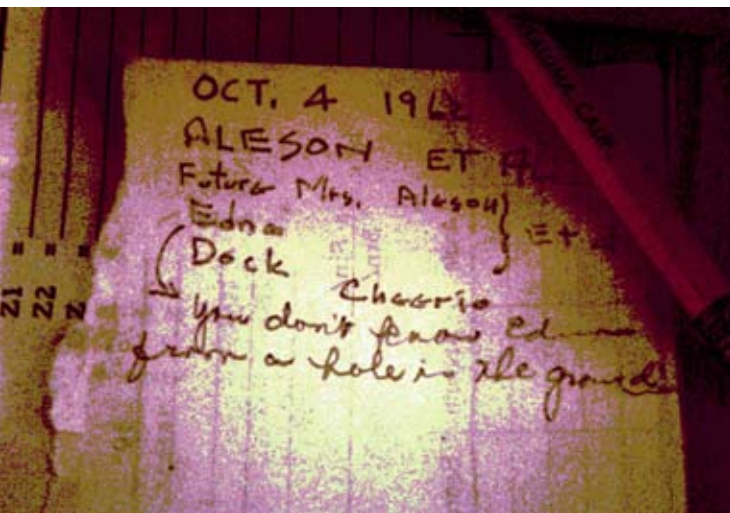 OCT. 4 196
ALESON ET AL
Future Mrs. Aleson } Et
Edna
Dock
Cheerio
you don't know Edna
from a hole in the ground
21 =
22 =